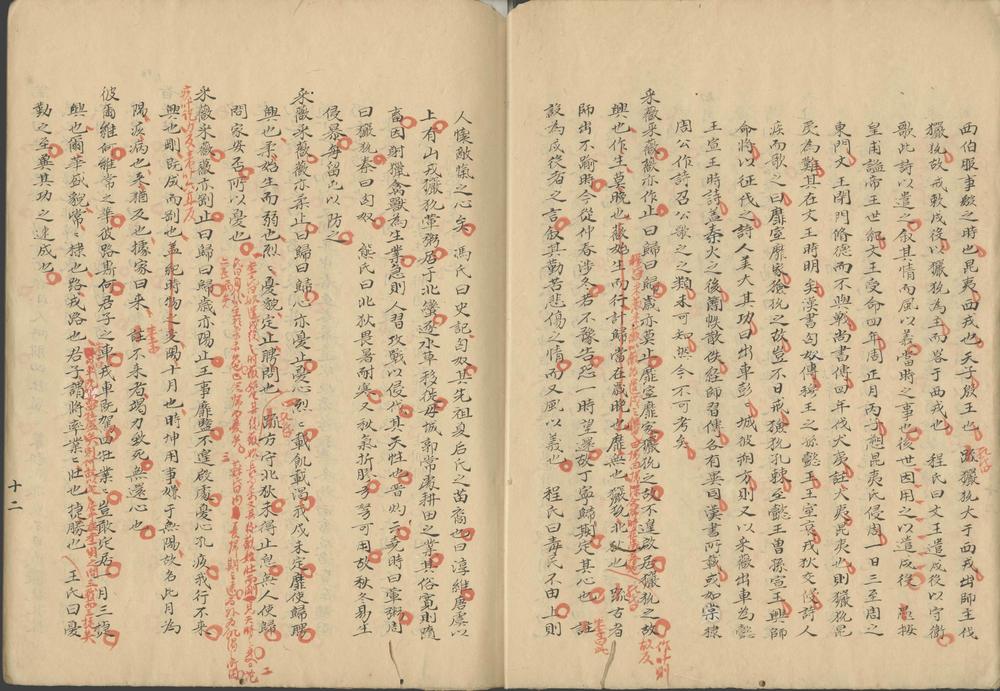 西伯服事殷之時也昆夷西戎也天子殷王也 疏玁狁大于西戎出師主伐
玁狁故戒敕戍役以玁狁為主而畧于西戎也 程氏曰文王遣戍役以守衛
歌此詩以遣之叙其情而風以義當時之事也後世因用之以遣戍役 愚按
皇甫謐帝王世紀文王受命四年周正月丙子朔昆夷氏侵周一日三至周之
東門文王閉門脩德而不與戰尚書傳四年伐犬夷註犬夷昆夷也則玁狁昆
夷為難其在文王時明矣漢書匈奴傳穆王之孫懿王王室衰戎狄交侵詩人
疾而歌之曰靡室靡家玁狁之故豈不日戒玁狁孔棘至懿王曾孫宣王興師
命將以征伐之詩人美大其功曰出車彭〻城彼朔方則又以采薇出車為懿
王宣王時詩蓋秦火之後簡帙散佚經師習傳各有異同漢書所載或如棠棣
周公作詩召公歌之之類未可知然今不可考矣
采薇采薇薇亦作止曰歸曰歸歲亦莫止靡室靡家玁狁之故不遑啟居玁狁之故
興也作生莫晚也薇始生而行計歸當在歲晚也靡無也玁狁北狄也 疏古者
師出不踰時今從仲春涉冬若不豫告恐一時望還故丁寧歸期定其心也 註
設為戍役者之言叙其勤苦悲傷之情而又風以義也 程氏曰毒民不由上則
人懷敵愾之心矣 馮氏曰史記匈奴其先祖夏后氏之苗裔也曰淳維唐虞以
上有山戎玁狁葷粥居于北蠻逐水草移徙毋城郭常處耕田之業其俗寬則隨
畜因射獵禽獸為生業急則人習攻戰以侵伐其天性也晉灼云堯時曰葷粥周
曰玁狁秦曰匈奴 熊氏曰北狄畏暑耐寒又秋氣折膠弓弩可用故秋冬易生
侵暴每留屯以防之
采薇采薇薇亦柔止曰歸曰歸心亦憂止憂心烈〻載飢載渴我戍未定靡使歸聘
興也柔始生而弱也烈〻憂貌定止聘問也 疏方守北狄未得止息無人使歸
問家安否所以憂也
采薇采薇薇亦剛止曰歸曰歸歲亦陽止王事靡盬不遑啟處憂心孔疚我行不來
興也剛既成而剛也 盖紀時物之變陽十月也時坤用事嫌于無陽故名此月為
陽疚病也來猶反也據家曰來 註不來者竭力致死無還心也
彼爾維何維常之華彼路斯何君子之車戎車既駕四牡業〻豈敢定居一月三捷
興也爾華盛貌常〻棣也路戎路也君子謂將率業〻壯也捷勝也 王氏曰憂
勤之至冀其功之速成也
十二